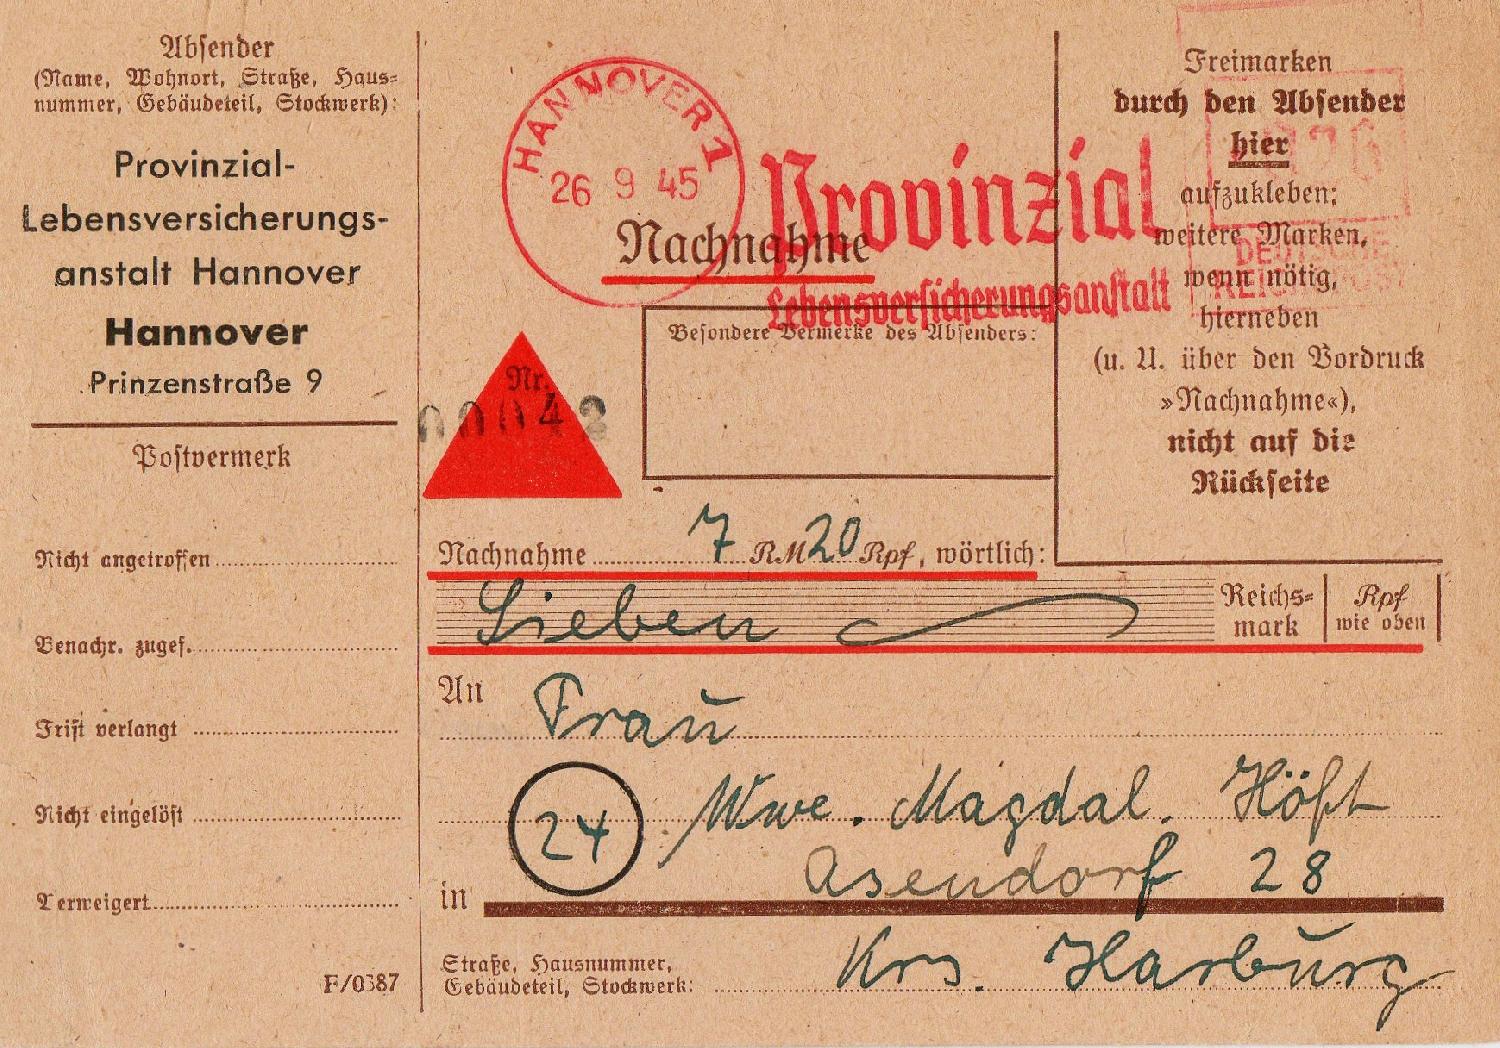 Absender
(Name, Wohnort, Straße, Haus-
nummer, Gebäudeteil, Stockwerk):
Provinzial-
Lebensversicherungs-
anstalt Hannover
Hannover
Prinzenstraße 9
Postvermerk
Nicht angetroffen
Benachr. zugef.
Frist verlangt
Nicht eingelöst
Verweigert
F/0387
HANNOVER 1
26 9 45
Provinzial
Lebensversicherungsanstalt
Nachnahme
Besondere Vermerke des Absenders:
Nr.
00042
Freimarken
durch den Absender
hier
aufzukleben;
weitere Marken,
wenn nötig,
hierneben
(u. U. über den Vordruck
»Nachnahme«),
nicht auf die
Rückseite
DEUTSCHE
REICHSPOST
Nachnahme 7 RM 20 Rpf, wörtlich:
Sieben
Reichs-
mark
Rpf
wie oben
An Frau
24 Wwe. Magdal. Höft
in Asendorf 28
Straße, Hausnummer,
Gebäudeteil, Stockwerk:
Krs. Harburg